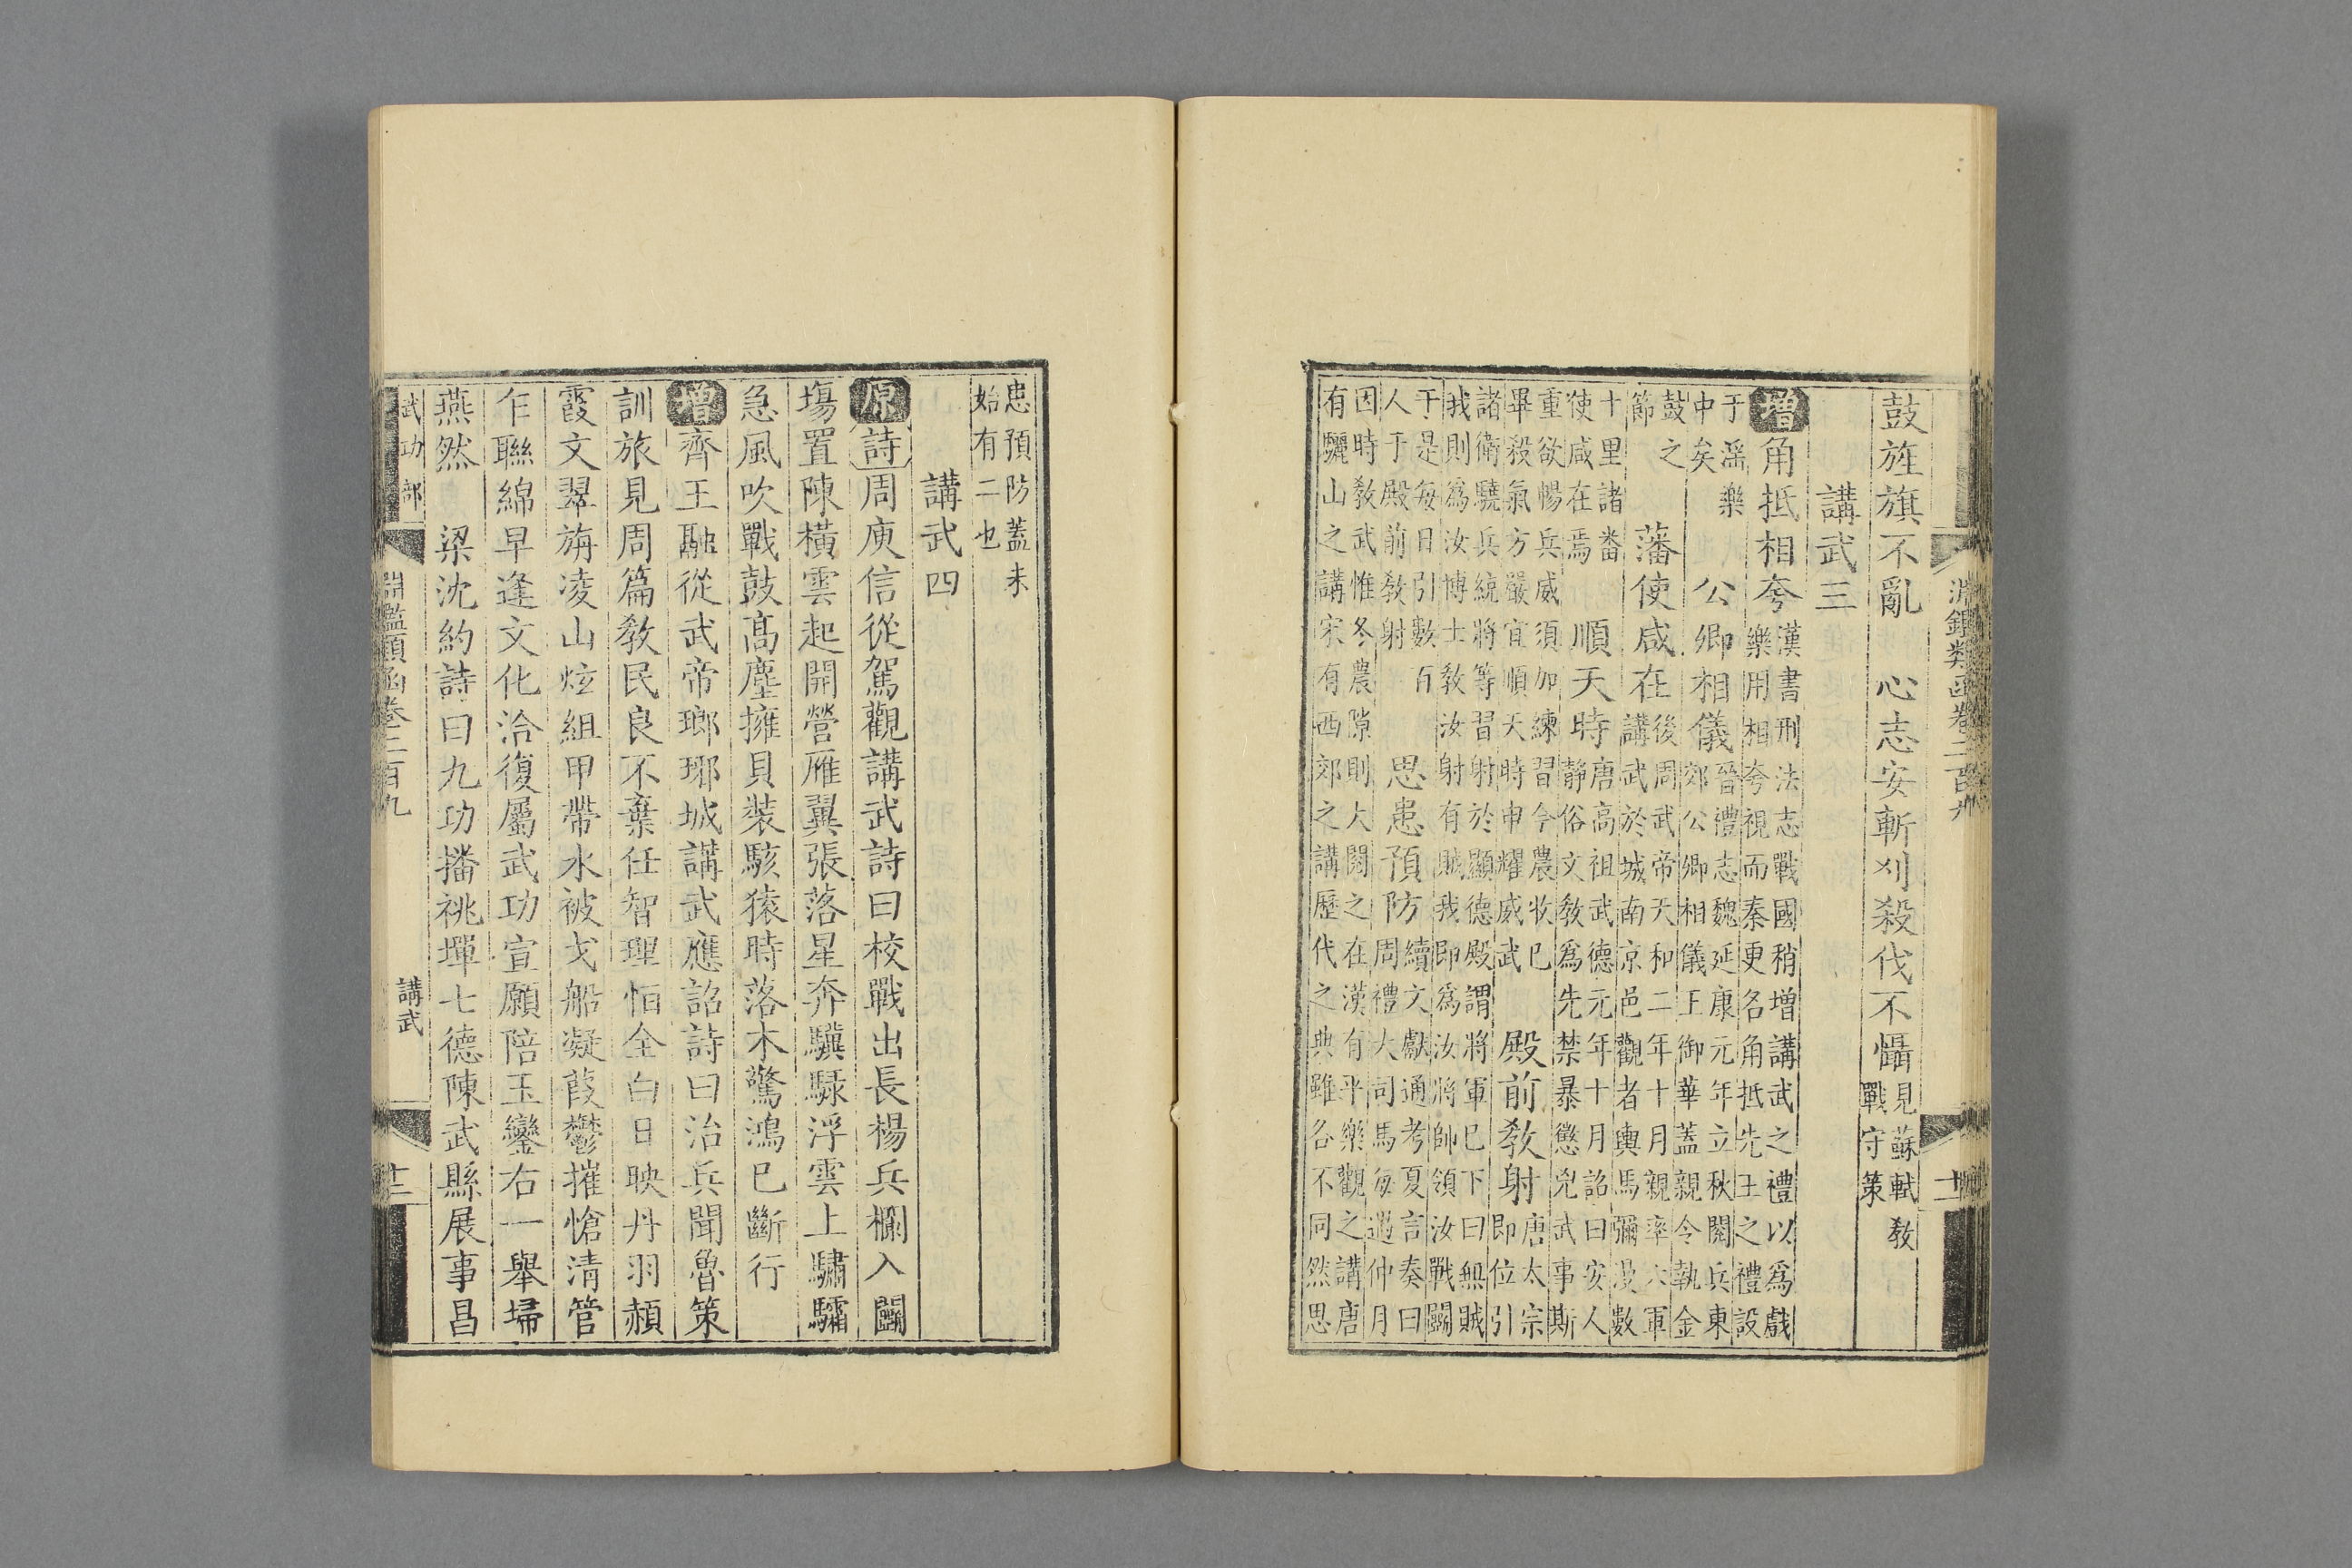 鼓旌旗不亂　心志安斬刈殺伐不懾見蘇軾教
戰守策
講武三
增角抵相夸漢書刑法志戰國稍增講武之禮以爲戲
樂用相夸視而秦更名角抵先王之禮設
于滛樂
中矣　公卿相儀晉禮志魏延康元年立秋閱兵東
郊公卿相儀王御華蓋親令執金
鼓之
節　藩使咸在後周武帝天和二年十月親率六軍
講武於城南京邑觀者輿馬彌漫數
十里諸番
使咸在焉　順天時唐高祖武德元年十月詔曰安人
靜俗文敎爲先禁暴懲兇武事斯
重欲暢兵威須加練習今農收已
畢殺氣方嚴宜順天時申耀威武　殿前敎射唐太宗
即位引
諸衛驍兵統將等習射於顯德殿謂將軍已下曰無賊
我則爲汝博士敎汝射有賊我即爲汝將帥領汝戰鬭
于是每日引數百
人于殿前敎射　思患預防續文獻通考夏言奏曰
周禮大司馬每遇仲月
因時敎武惟冬農隙則大閱之在漢有平樂觀之講唐
有驪山之講宋有西郊之講歷代之典雖各不同然思
患預防蓋未
始有二也
講武四
原詩周庾信從駕觀講武詩曰校戰出長楊兵欄入鬭
塲置陳橫雲起開營雁翼張落星奔驥騄浮雲上驌驦
急風吹戰鼓高塵擁貝裝駭猿時落木驚鴻已斷行
增齊王融從武帝瑯琊城講武應詔詩曰治兵聞魯策
訓旅見周篇敎民良不棄任智理恒全白日映丹羽赬
霞文翠旃凌山炫組甲帶水被戈船凝葭鬱摧愴清管
乍聯綿早逢文化洽復屬武功宣願陪玉鑾右一舉埽
燕然　梁沈約詩曰九功播祧墠七德陳武縣展事昌
武功部　淵鑑類函卷二百九　講武　十二